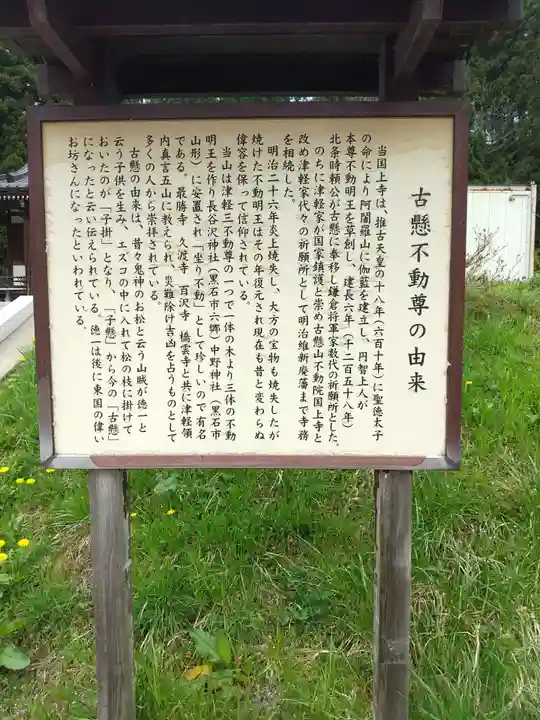 古懸不動尊の由来
当国上寺は、推古天皇の十八年(六百十年)に聖徳太子
の命により阿闍羅山に伽藍を建立し、円智上人が
本尊不動明王を草創し、建長六年(十二百五十八年)
北条時頼公が古懸に奉移し鎌倉将軍家数代の祈願所とした。
のちに津軽家が国家鎮護と崇め古懸山不動院国上寺と
改め津軽家代々の祈願所として明治維新廃藩まで寺務
を相続した。
明治二十六年炎上焼失し、大方の宝物も焼失したが
焼けた不動明王はその年復元され現在も昔と変わらぬ
偉容を保って信仰されている。
当山は津軽三不動尊の一つで一体の木より三体の不動
明王を作り長谷沢神社(黒石市六郷)中野神社(黒石市
山形)に安置され「坐り不動」として珍しいので有名
である。最勝寺 久渡寺 百沢寺 橋雲寺と共に津軽領
内真言五山に教えられ、災難除け吉凶を占うものとして
多くの人から崇拝されている。
古懸の由来は、昔々鬼神のお松と云う山賊が徳一と
云う子供を生み、エズコの中に入れて松の枝に掛けて
おいたのが「子掛」となり、「子懸」から今の「古懸」
になったと云い伝えられている。徳一は後に東国の偉い
お坊さんになったといわれている。